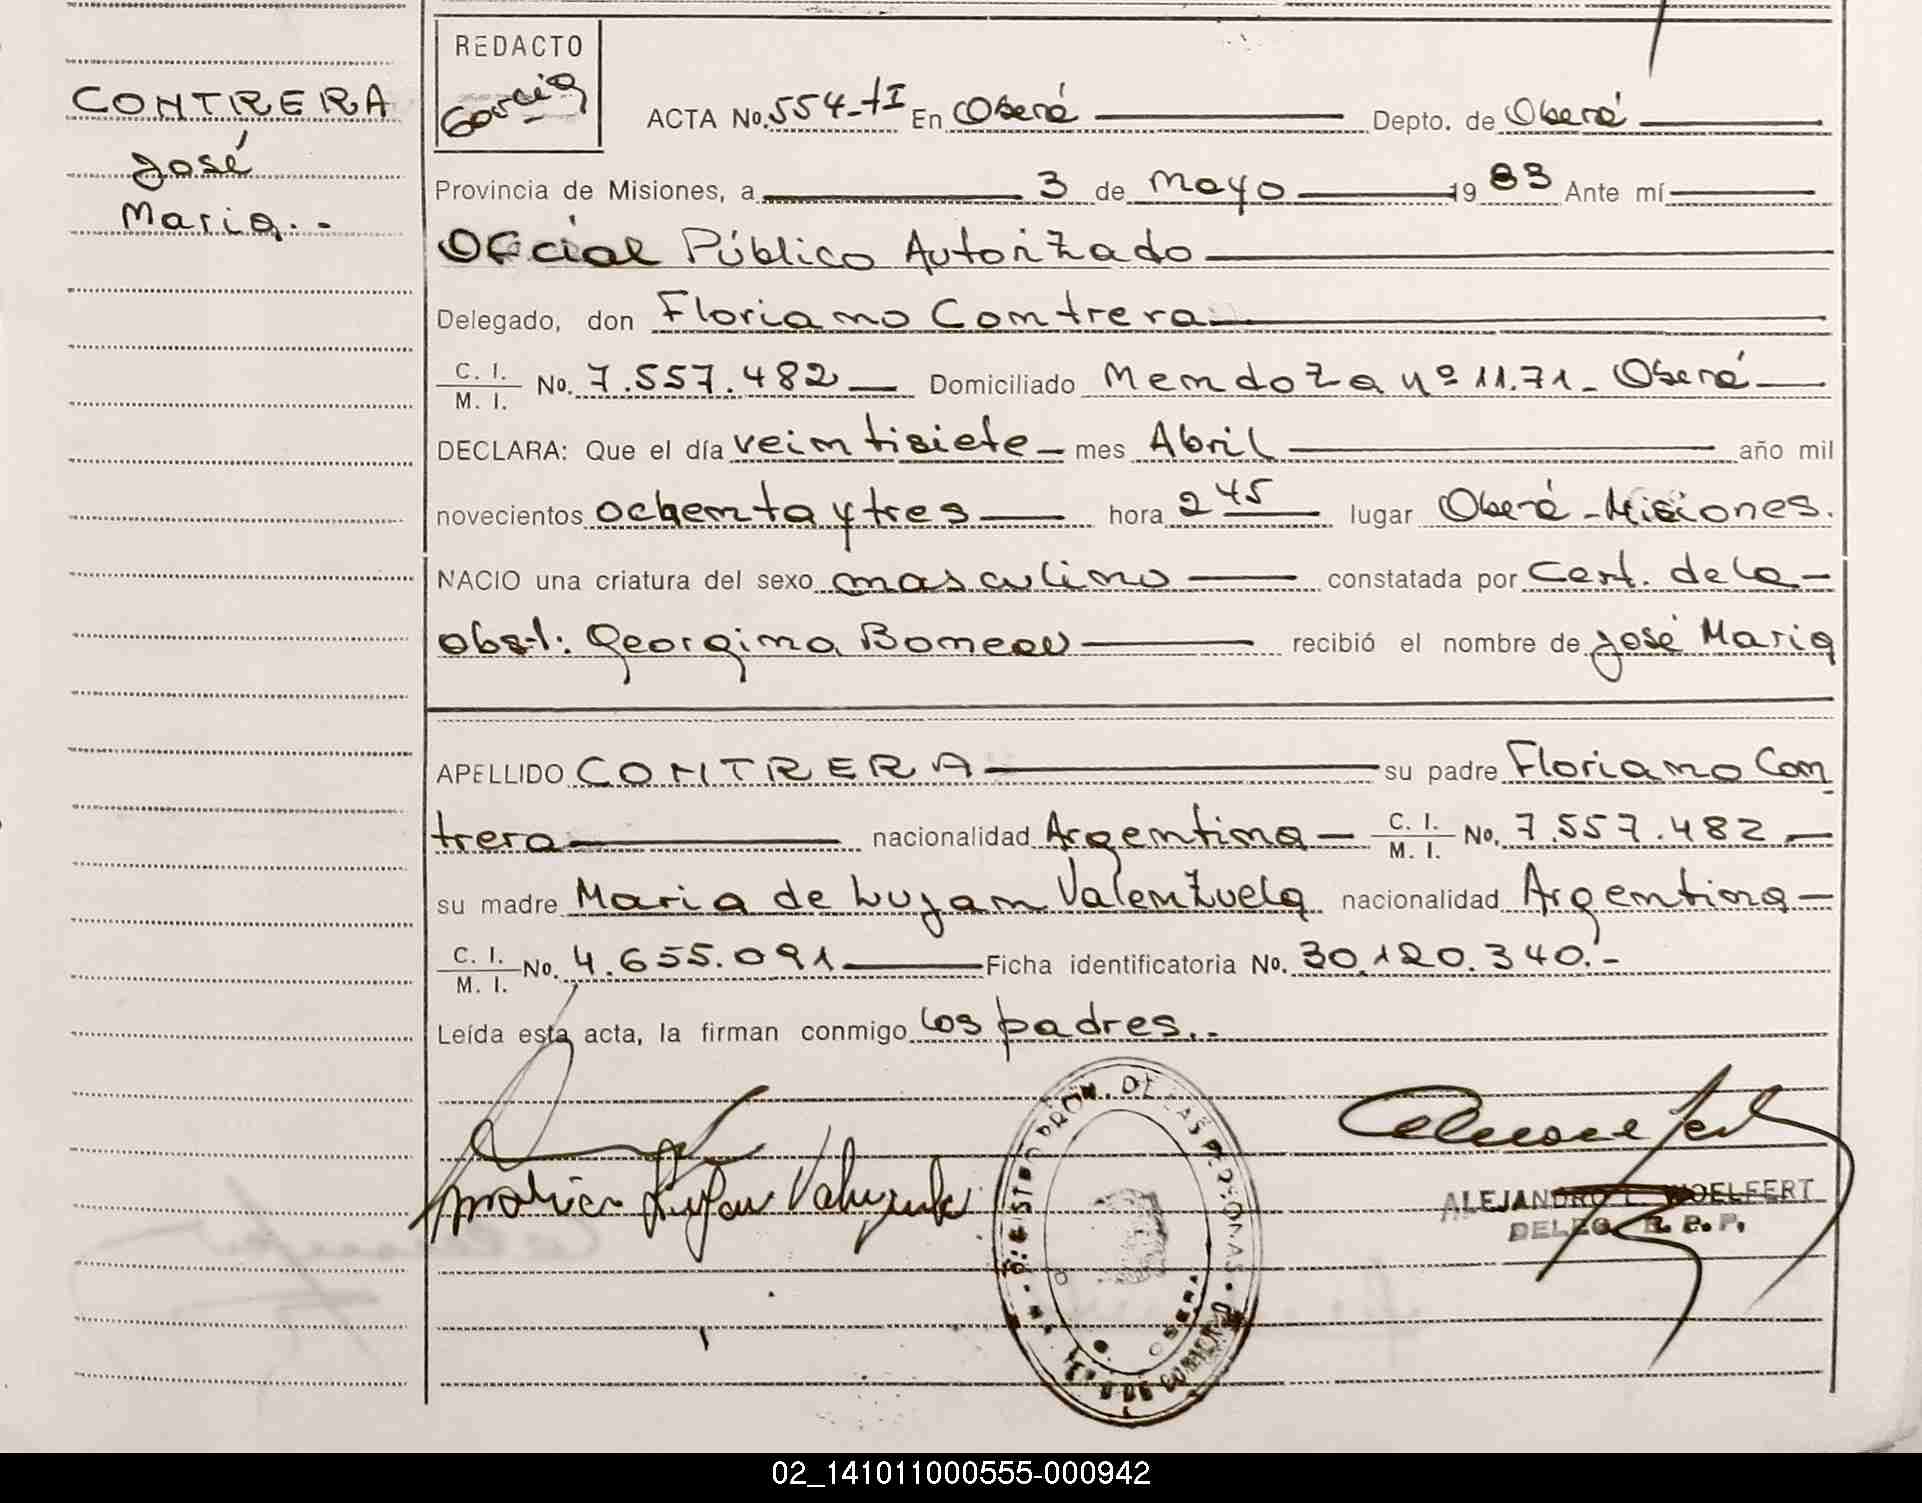 CONTRERA
José
Maria.-
REDACTO
Garcia
ACTA No. 554-tI En Oberá Depto. de Oberá
Provincia de Misiones, a 3 de mayo 19 83 Ante mí
Oficial Público Autorizado
Delegado, don Floriano Contrera
C. I.
M. I.
No. 7.557.482 Domiciliado Mendoza nº 11.71- Oberá
DECLARA: Que el día veintisiete mes Abril año mil
novecientos ochenta y tres hora 2 45 lugar Oberá - Misiones.
NACIO una criatura del sexo masculino constatada por Cert. de la
obst: Georgina recibió el nombre de José Maria
APELLIDO CONTRERA su padre Floriano Con
trera nacionalidad Argentina C. I.
M. I.
No. 7.557.482
su madre Maria de Lujan Valenzuela nacionalidad Argentina
C. I.
M. I.
No. 4.655.091 Ficha identificatoria No. 30.120.340.-
Leída esta acta, la firman conmigo los padres.-
Maria Lujan Valenzuela
ALEJANDRO L. WOELFERT
DELEG. R. P. P.
OBERA
02_141011000555-000942